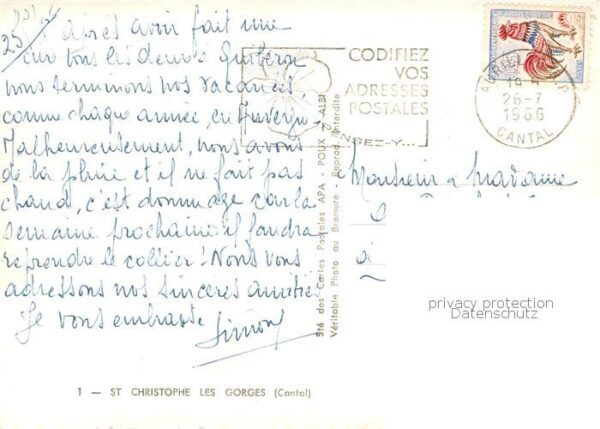 25/7 Après avoir fait une
cure tous les deux à Quiberon
nous terminons nos vacances,
comme chaque année, en Auvergne
Malheureusement, nous avons
de la pluie et il ne fait pas
chaud, c'est dommage car la
semaine prochaine il faudra
reprendre le collier ! Nous vous
adressons nos sincères amitiés
Je vous embrasse Simon
1 — ST CHRISTOPHE LES GORGES (Cantal)
Sté des Cartes Postales APA - POUX - ALBI
Véritable Photo au Bromure - Reprod. interdite
CODIFIEZ
VOS
ADRESSES
POSTALES
PENSEZ-Y...
26-7
1966
CANTAL
Monsieur & Madame
à
privacy protection
Datenschutz